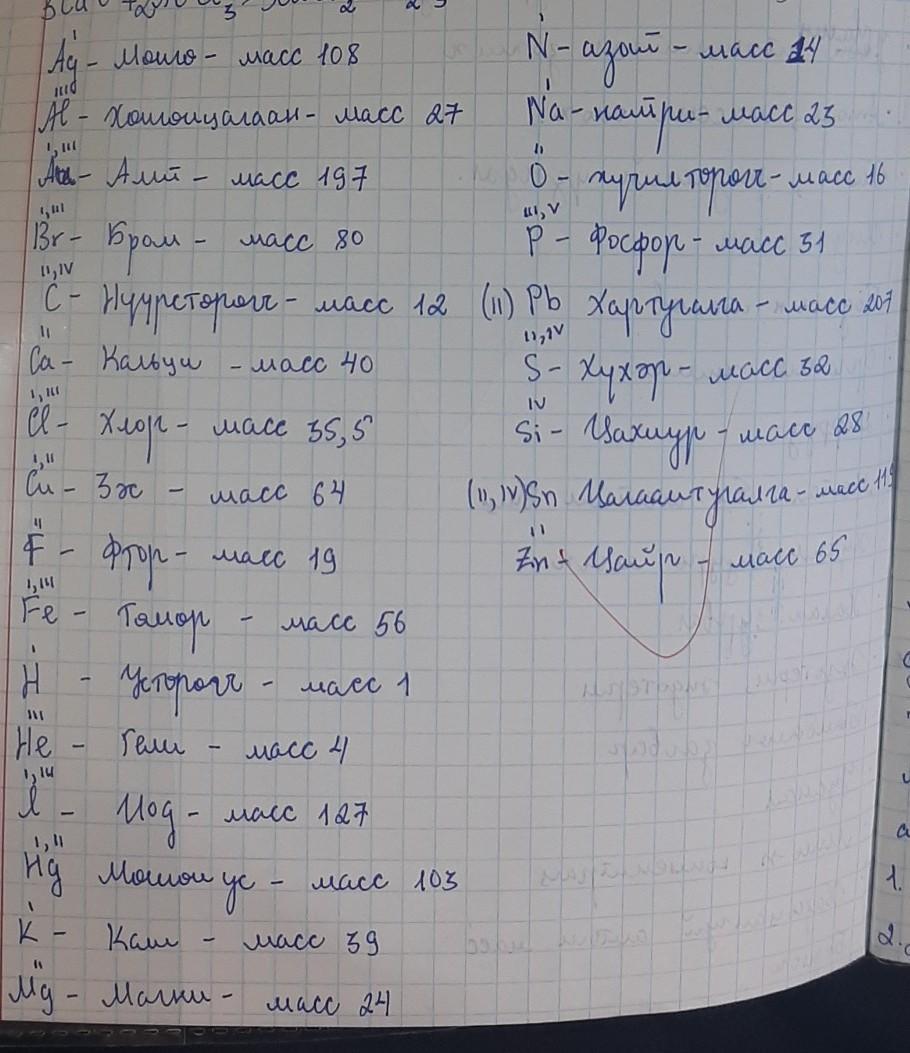 Ag - Мөнгө - масс 108
III
Al - Хөнгөнцагаан - масс 27
I, III
Au - Алт - масс 197
I, III
Br - Бром - масс 80
II, IV
C - Нүүрстөрөгч - масс 12
II
Ca - Кальци - масс 40
I, III
Cl - Хлор - масс 35,5
I, II
Cu - Зэс - масс 64
II
F - Фтор - масс 19
I, III
Fe - Төмөр - масс 56
I
H - Устөрөгч - масс 1
III
He - Гели - масс 4
I, III
I - Иод - масс 127
I, II
Hg Мөнгөн ус - масс 103
I
K - Кали - масс 39
II
Mg - Магни - масс 24
I
N - азот - масс 14
I
Na - натри - масс 23
II
O - хүчилтөрөгч - масс 16
III, V
P - Фосфор - масс 31
(II) Pb Хартугалга - масс 207
II, IV
S - Хүхэр - масс 32
IV
Si - Цахиур - масс 28
(II, IV) Sn Цагаантугалга - масс 119
II
Zn - Цайр - масс 65
1.
2.